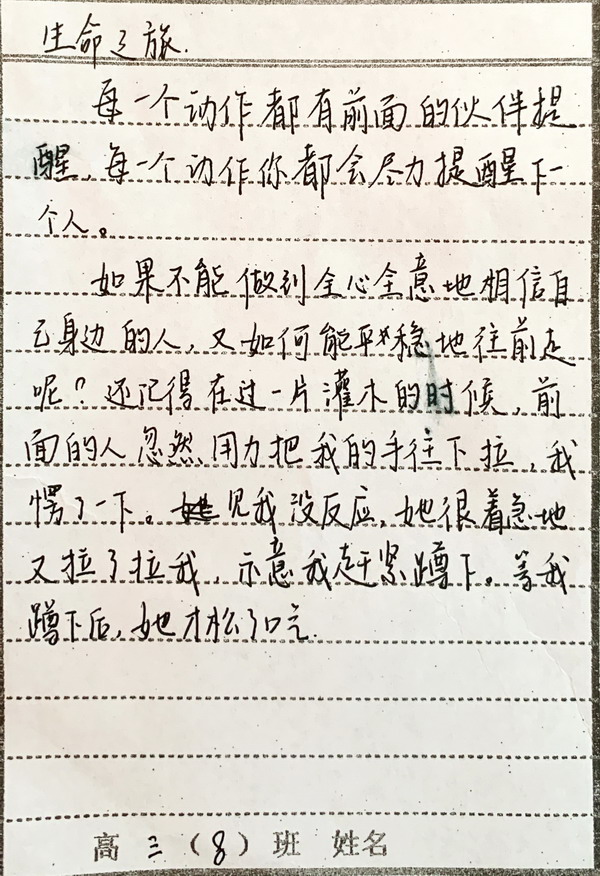 生命之旅.
每一个动作都有前面的伙伴提
醒，每一个动作你都会尽力提醒下一
个人。
如果不能做到全心全意地相信自
己身边的人，又如何能平稳地往前走
呢？还记得在过一片灌木的时候，前
面的人忽然用力把我的手往下拉，我
愣了一下。见我没反应，她很着急地
又拉了拉我，示意我赶紧蹲下。等我
蹲下后，她才松了口气.
高三（8）班 姓名